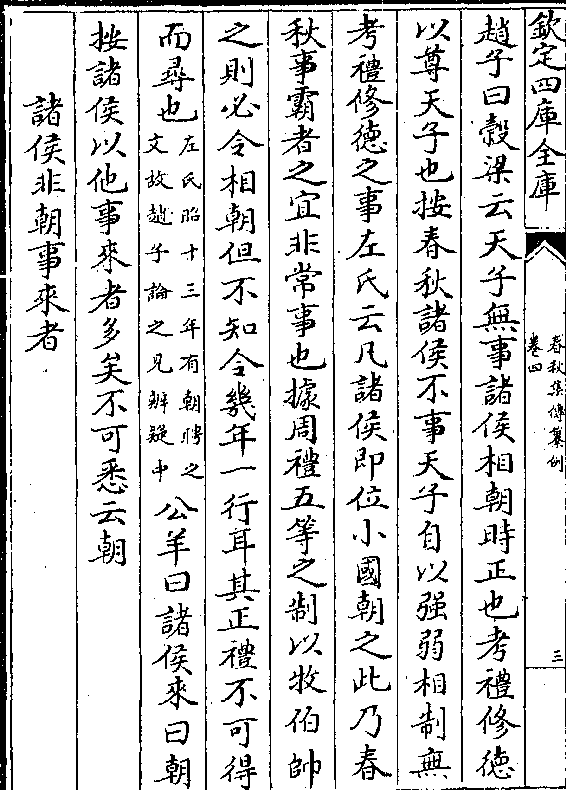 欽定四庫全書
春秋集傳纂例
卷四
三
趙子曰穀梁云天子無事諸侯相朝時正也考禮修徳
以尊天子也按春秋諸侯不事天子自以强弱相制無
考禮修徳之事左氏云凡諸侯即位小國朝之此乃春
秋事霸者之宜非常事也據周禮五等之制以牧伯帥
之則必令相朝但不知令幾年一行耳其正禮不可得
而尋也左氏昭十三年有朝聘之文故趙子論之見辨疑中公羊曰諸侯來曰朝
按諸侯以他事來者多矣不可悉云朝
諸侯非朝事來者